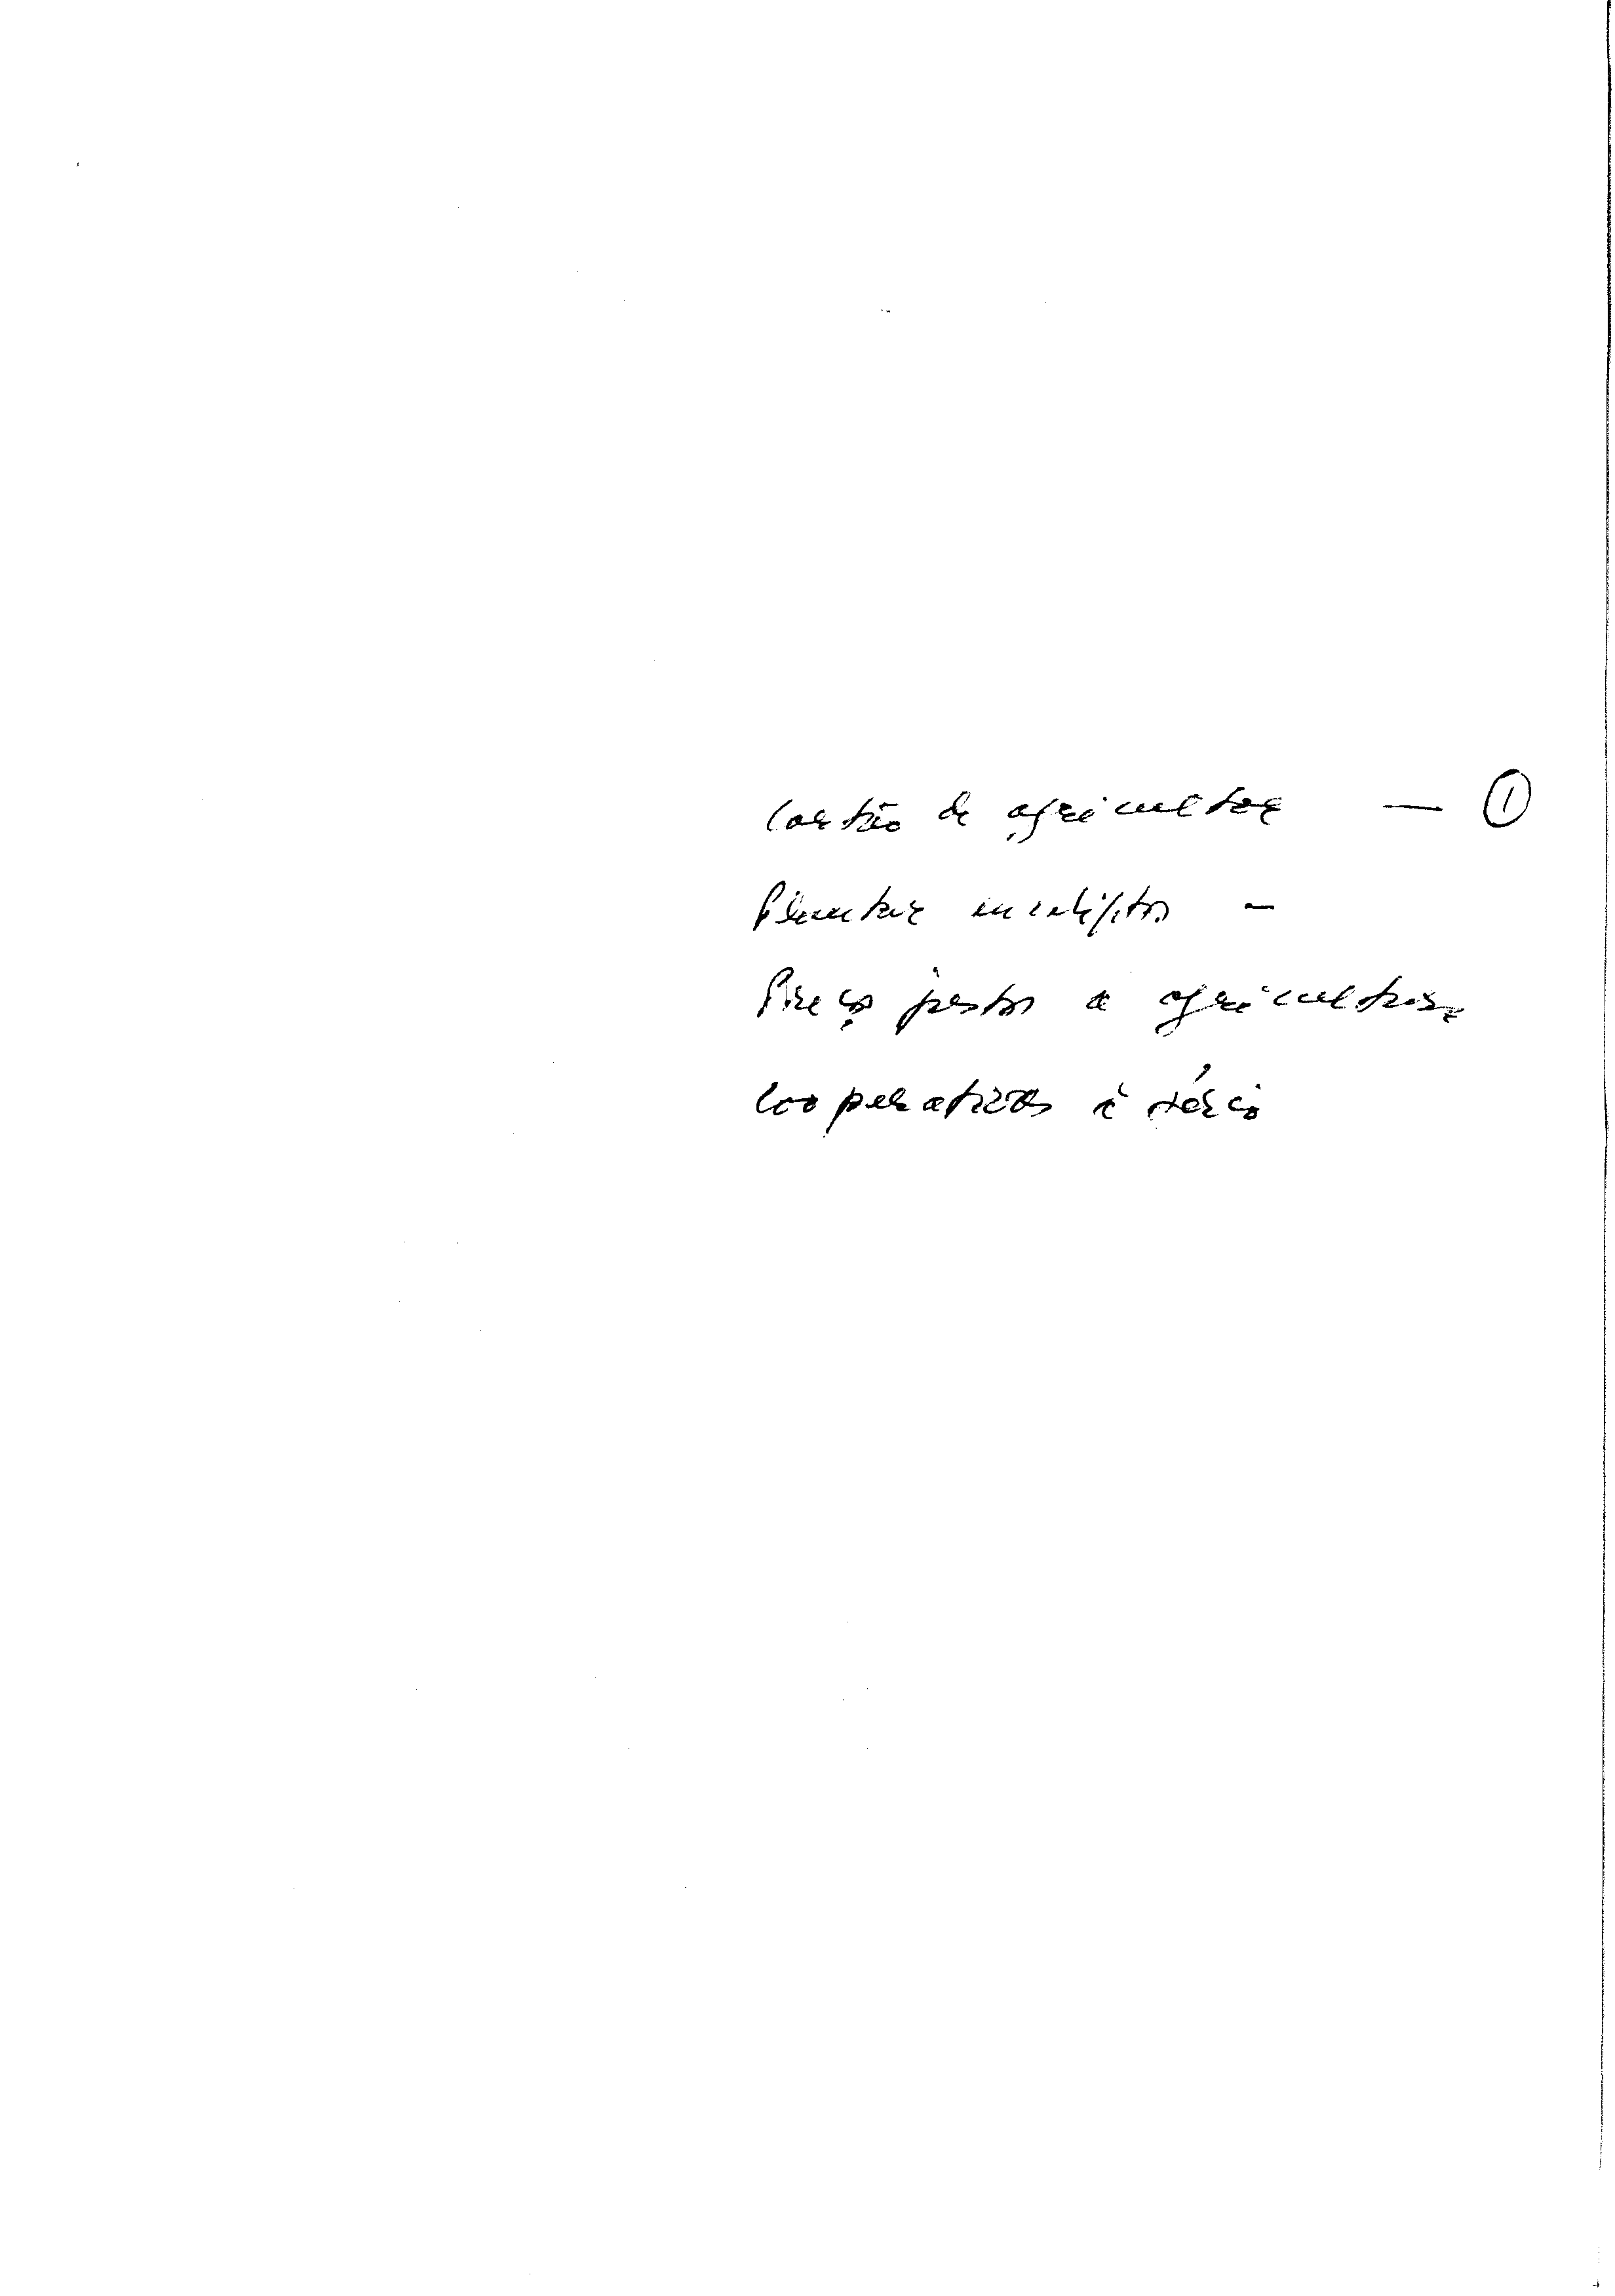 Cartão de agricultor — ①
Plantar eucaliptos –
Preço justos a agricultores
Cooperativas à sério